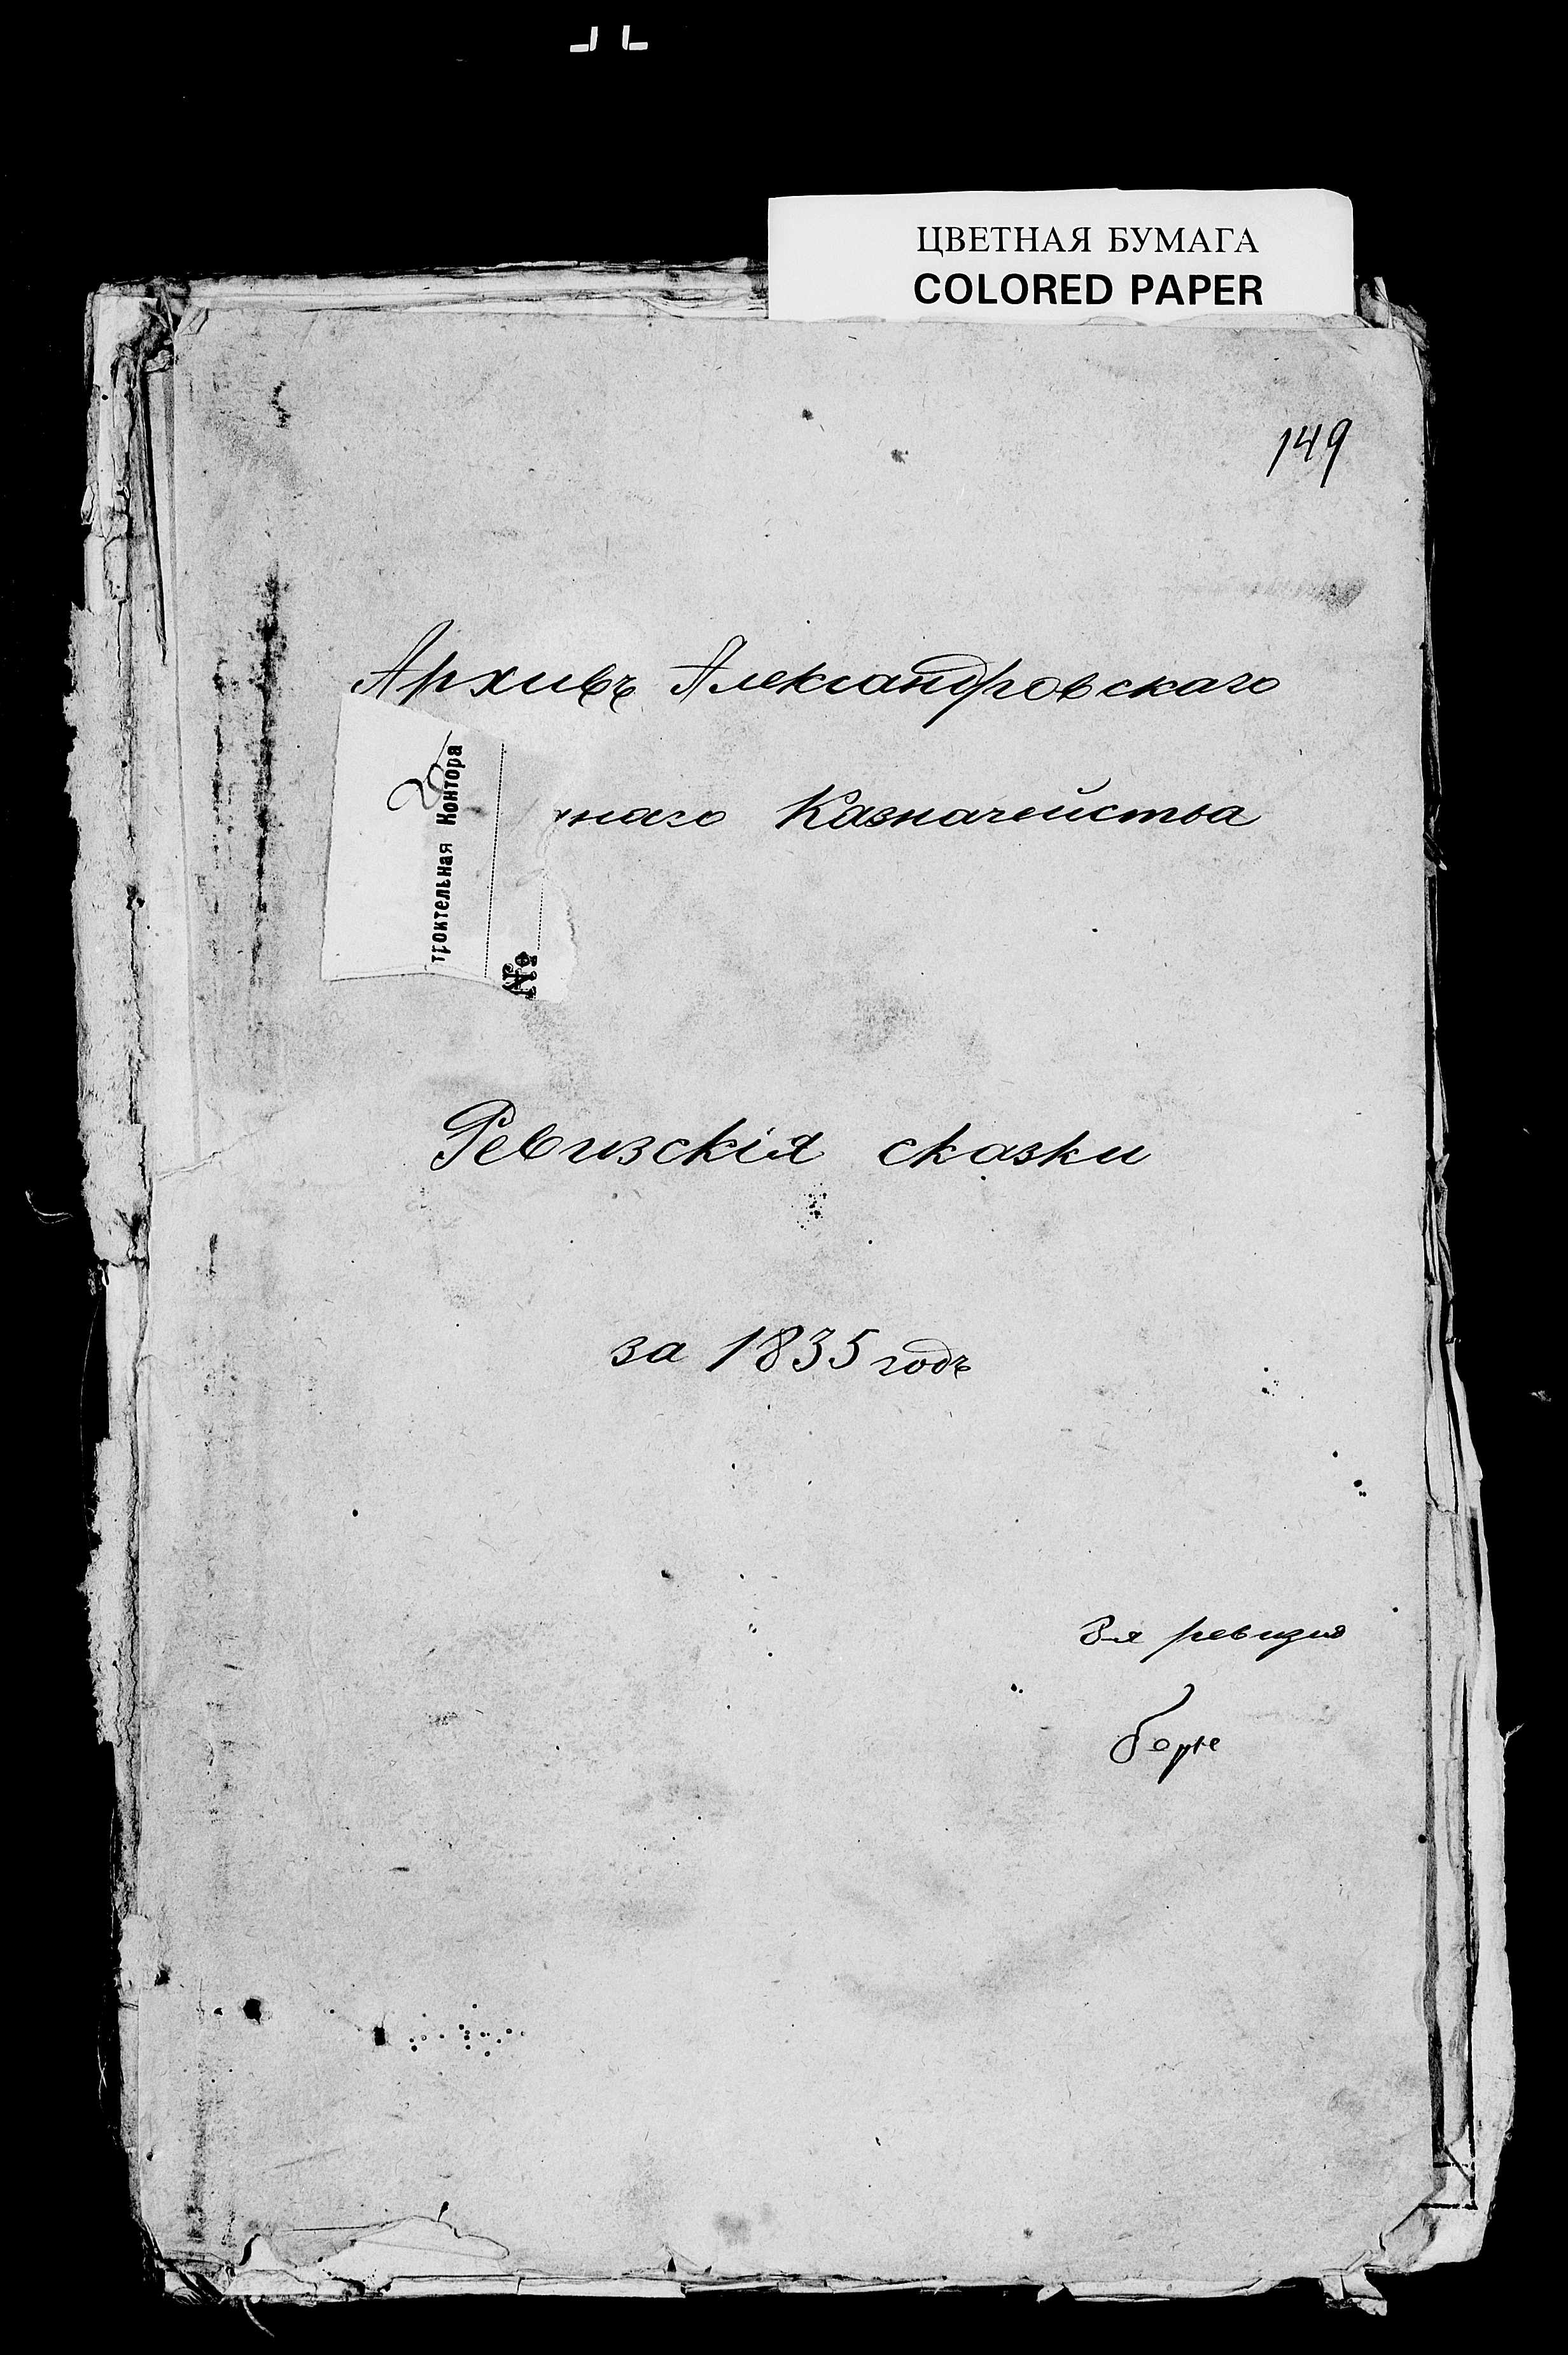 ЦВЕТНАЯ БУМАГА
COLORED PAPER
149
Архивъ Александровскаго
наго Казначейства
троительная Контора
№
Ревизскія сказки
за 1835 годъ
8-я ревизия